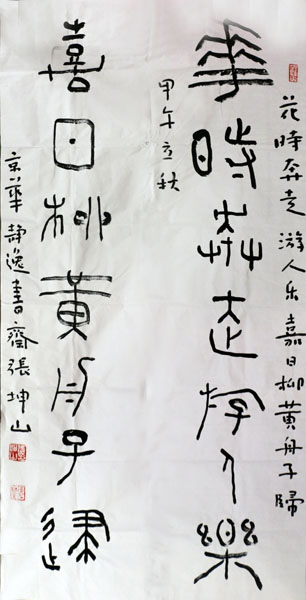 花時奔走游人乐嘉日柳黄舟子歸
華時奔走游人樂
甲午立秋
喜日柳黄舟子歸
京華静逸書齋張坤山